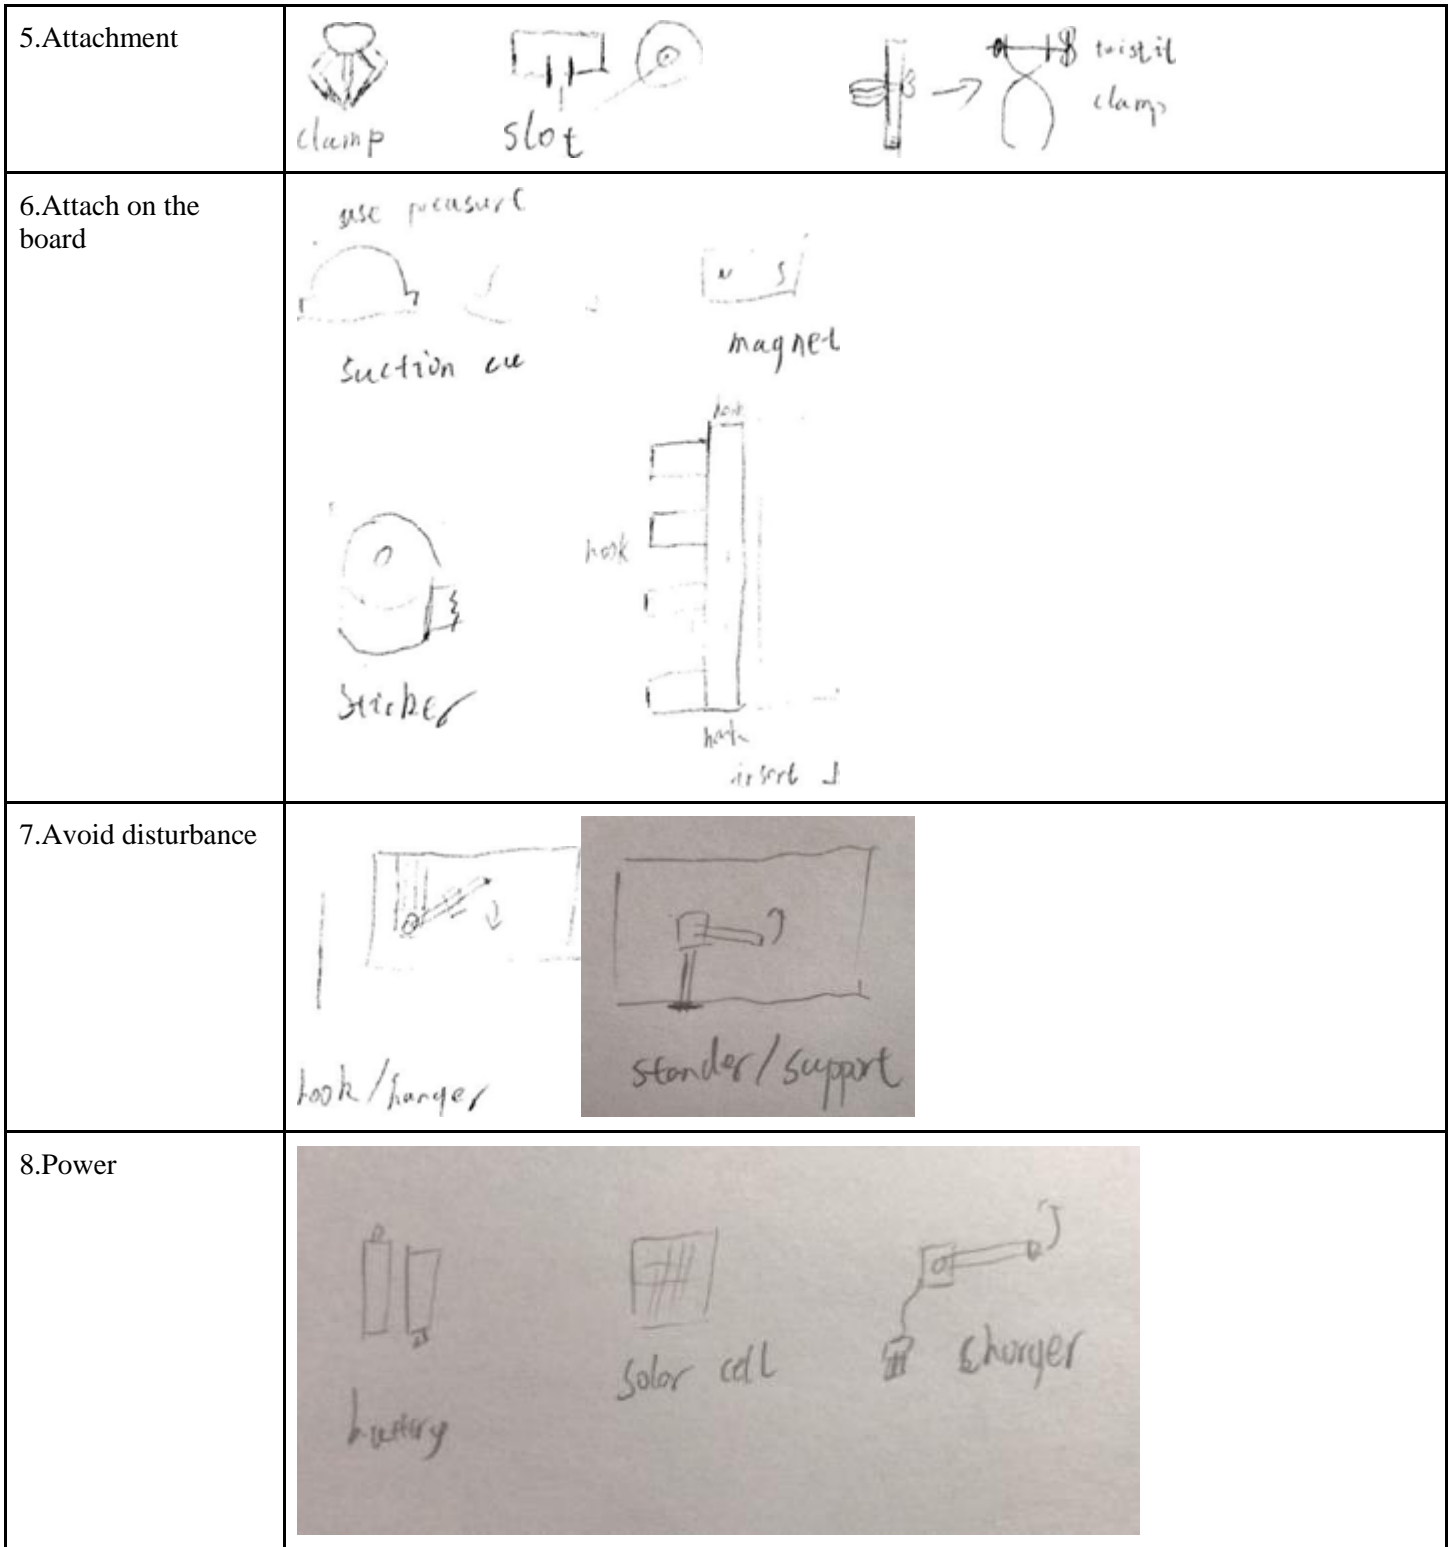 5.Attachment
clamp
slot
twist it
clamp
6.Attach on the
board
use
suction cu
magnet
hook
hook
sticker
hook
insert
7.Avoid disturbance
hook/hanger
stander/support
8.Power
battery
solar cell
charger